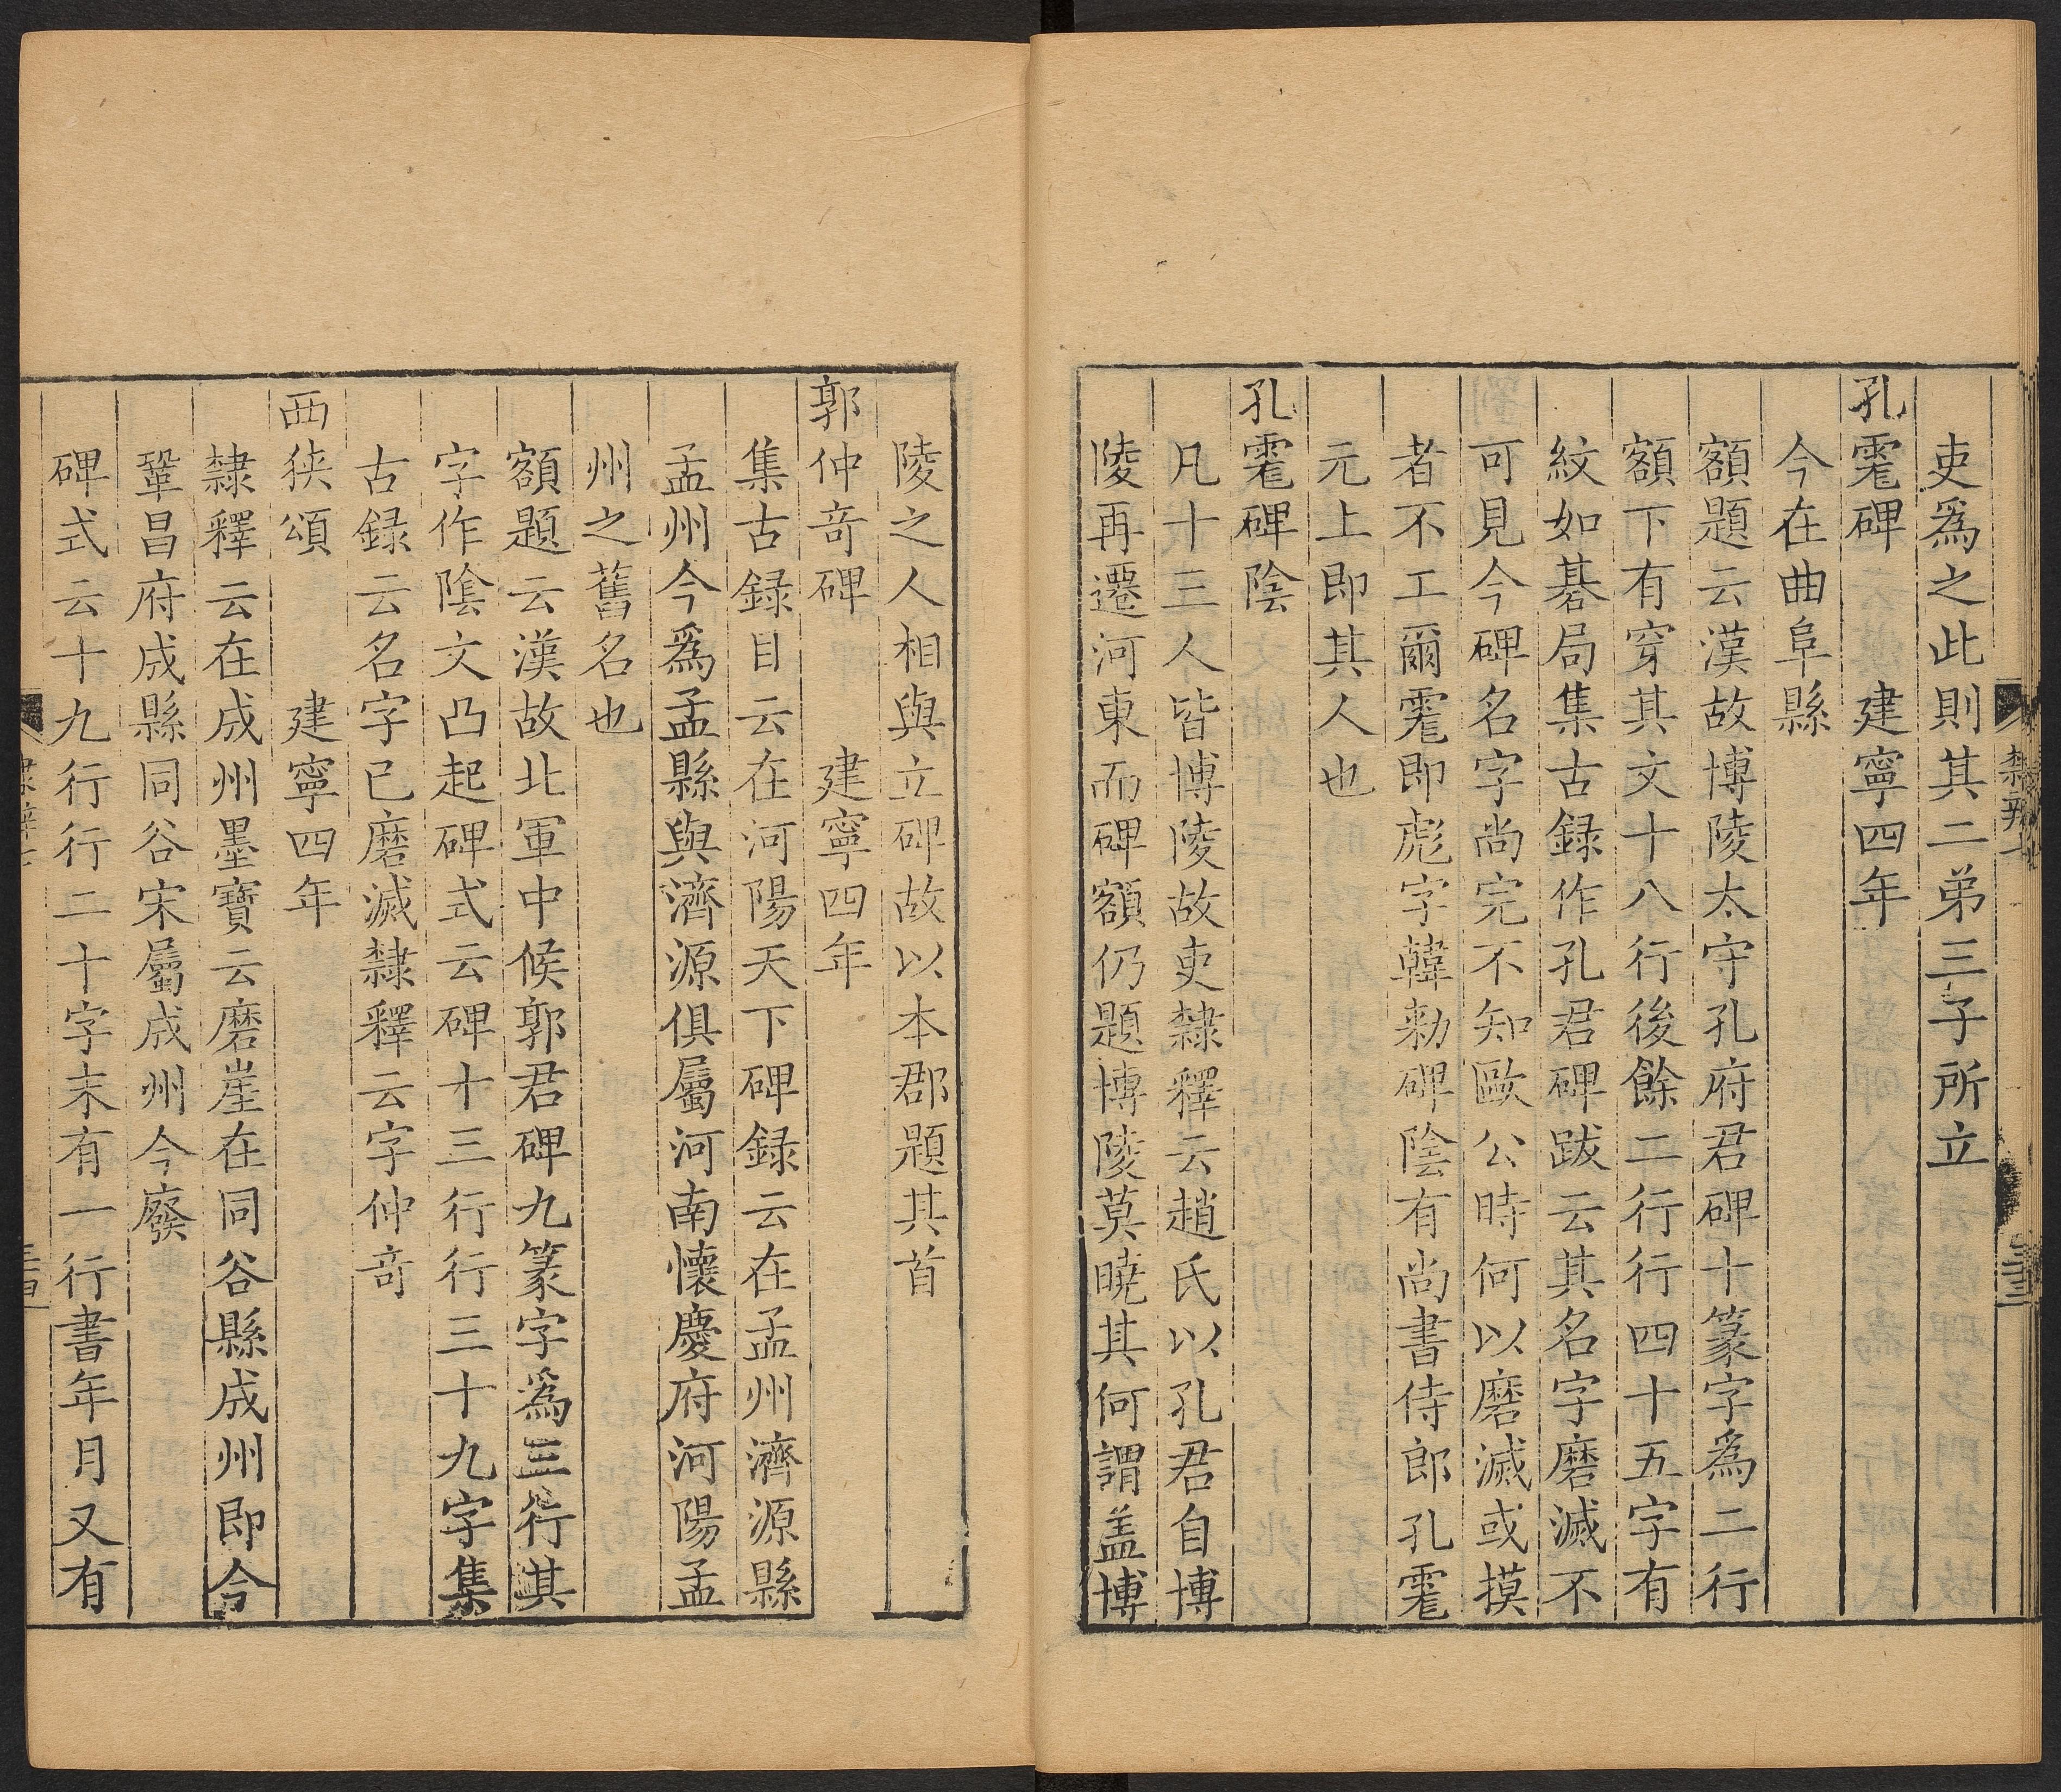 吏爲之此則其二弟三子所立
孔雿碑　建寧四年
今在曲阜縣
額題云漢故博陵太守孔府君碑十篆字爲二行
額下有穿其文十八行後餘二行行四十五字有
紋如碁局集古録作孔君碑跋云其名字磨滅不
可見今碑名字尚完不知歐公時何以磨滅或摸
者不工爾雿即彪字韓勑碑陰有尚書侍郎孔雿
元上即其人也
孔雿碑陰
凡十三人皆博陵故吏隸釋云趙氏以孔君自博
陵再遷河東而碑額仍題博陵莫曉其何謂盖博
陵之人相與立碑故以本郡題其首
郭仲奇碑　建寧四年
集古録目云在河陽天下碑録云在孟州濟源縣
孟州今爲孟縣與濟源俱屬河南懷慶府河陽孟
州之舊名也
額題云漢故北軍中候郭君碑九篆字爲三行其
字作陰文凸起碑式云碑十三行行三十九字集
古録云名字已磨滅隸釋云字仲奇
西狹頌　建寧四年
隸釋云在成州墨寶云磨崖在同谷縣成州即今
鞏昌府成縣同谷宋屬成州今廢
碑式云十九行行二十字末有一行書年月又有